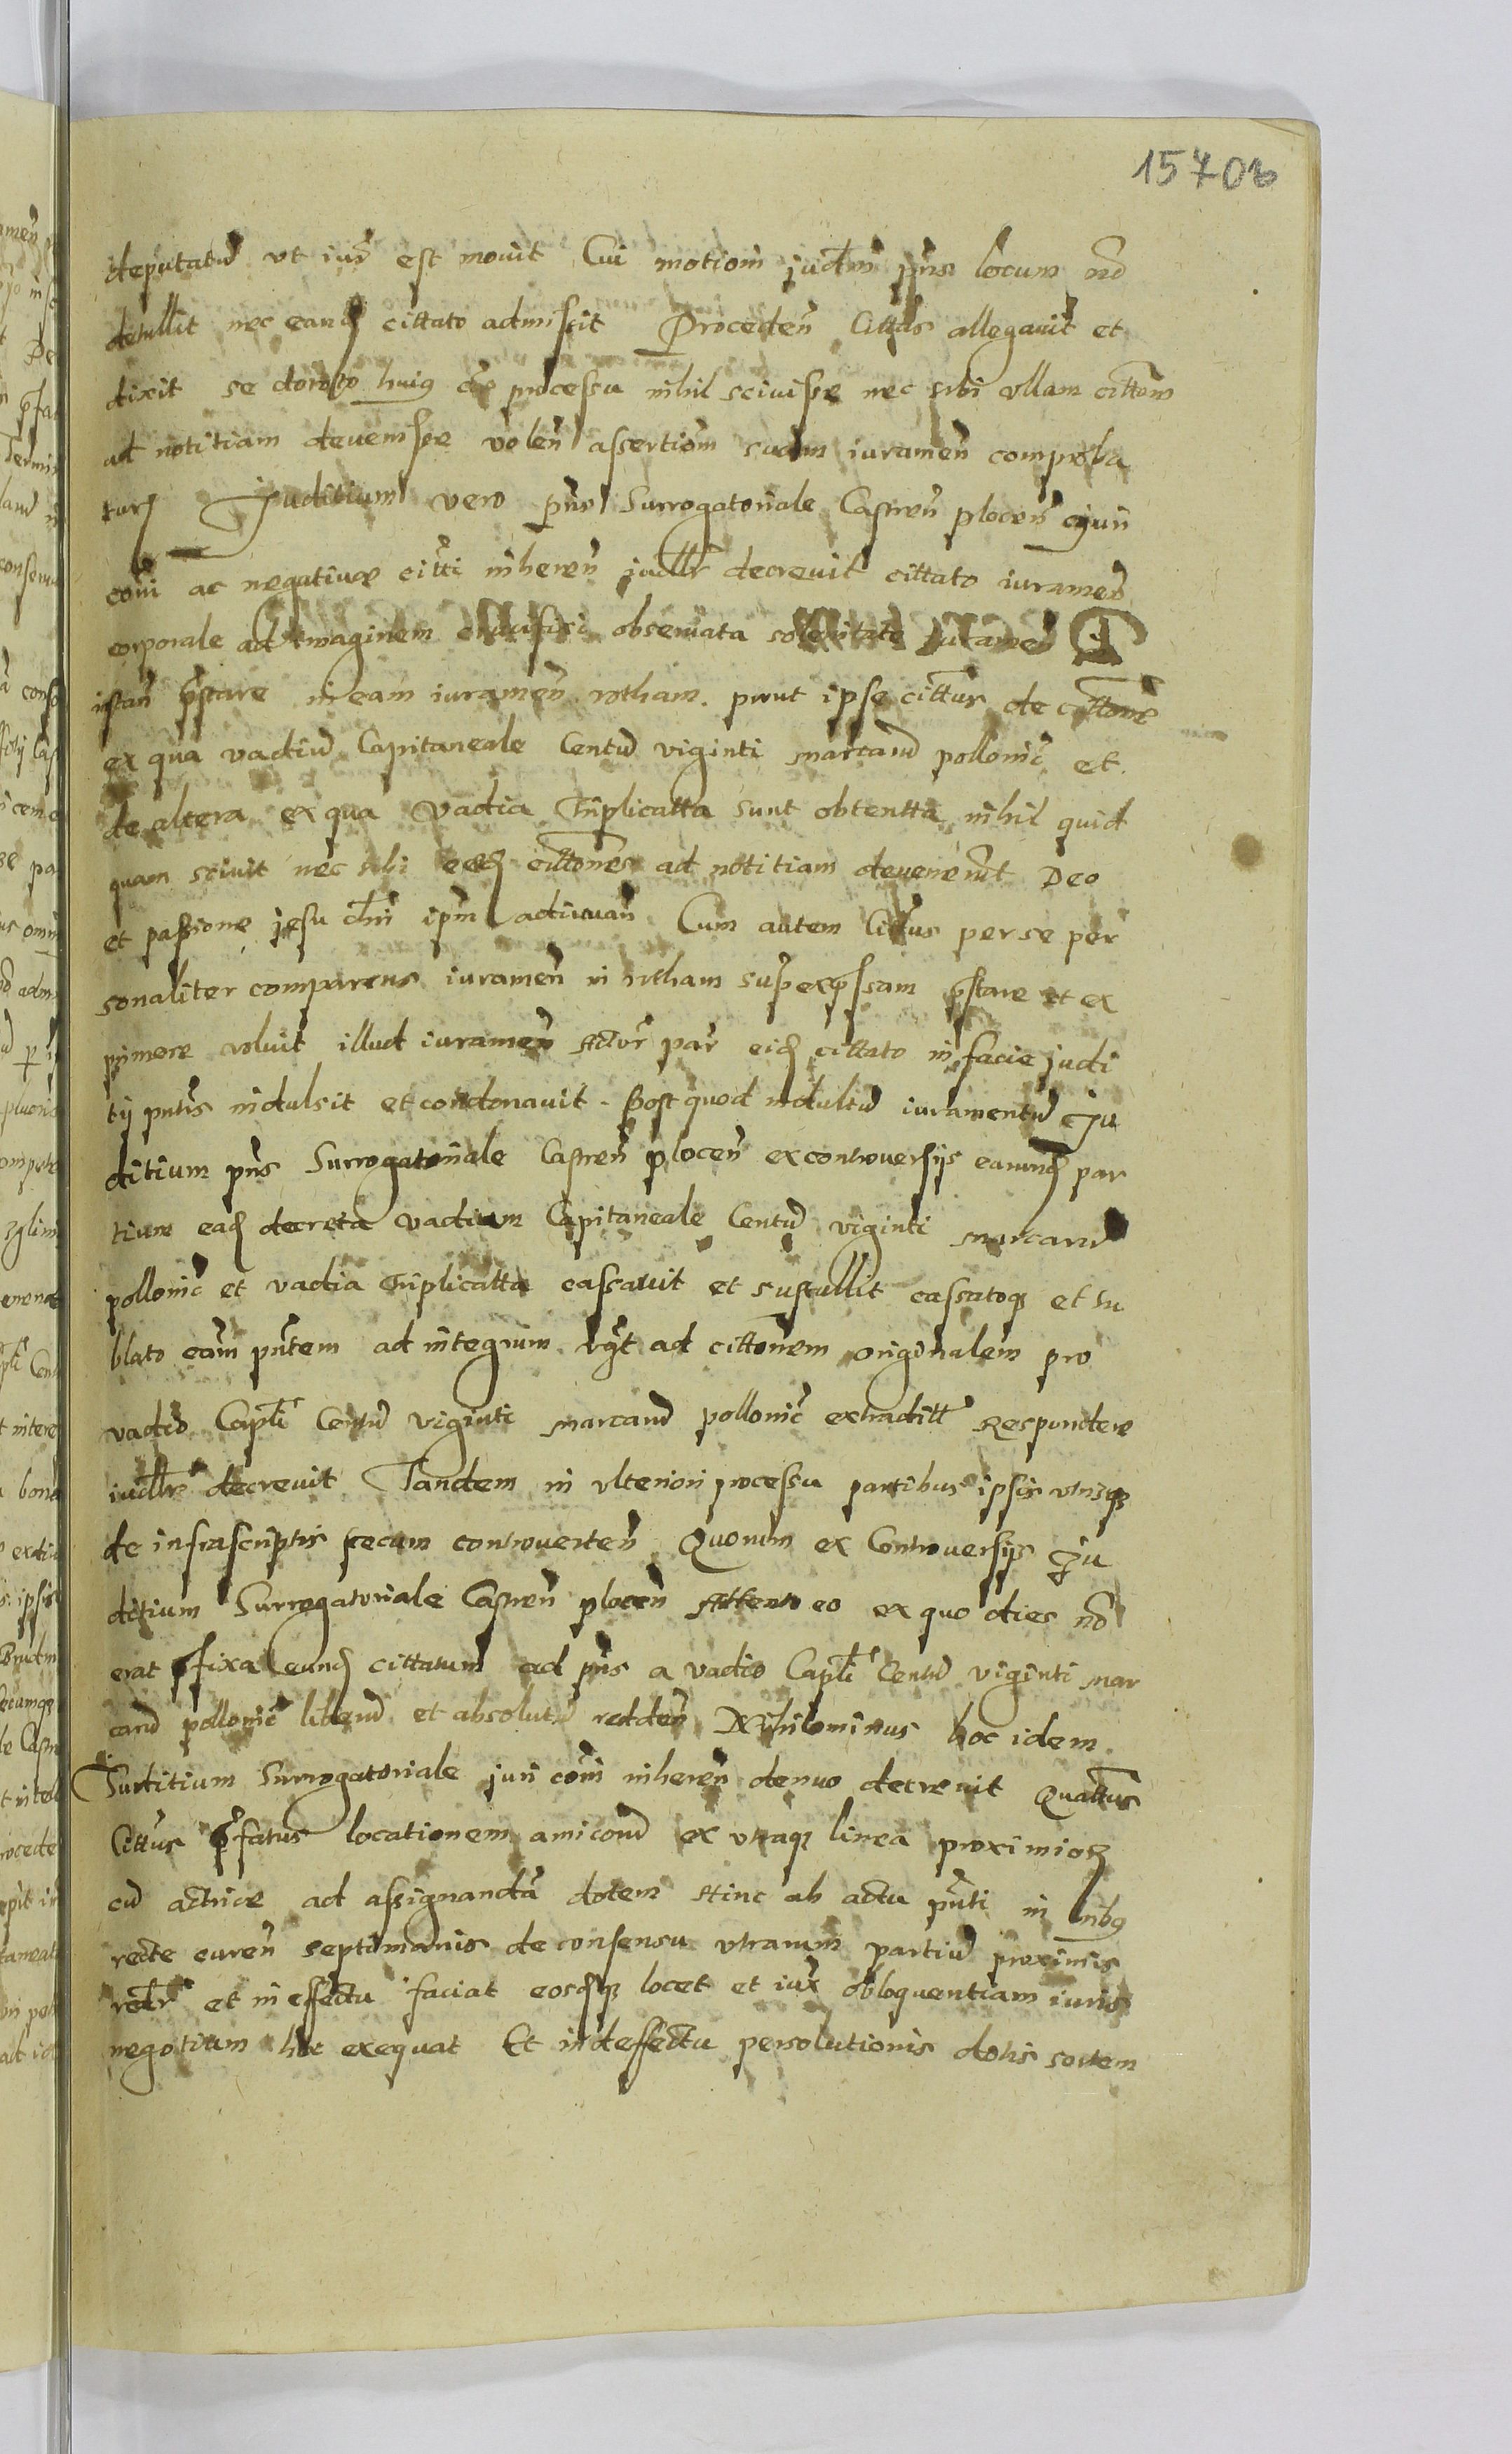 15708
deputatū vt iur̄ est mouit Cui motiom̄ judm̄ pn̄s locum nō
detullit nec eand̄ cittato admisit Proceden̄ Cittūs allegauit et
dixit se de toto huiq processu nihil sciuisse nec sibi ullam cittom̄
ad notitiam deuenisse volen̄ assertiom̄ suam iuramen̄ comproba
tur Juditium vero pn̄s Surrogatoriale Castren̄ plocen̄ juri
com̄i ac negatiuæ citti inheren̄ iudlr̄ decreuit cittato iuramen̄
corporale ad imaginem crucifixi obseruata solenitate juramen̄
istan̄ pstare in eam iuramen̄ rotham. prout ipse cittūs de cittone
ex qua vadiū Capitaneale Centū viginti marcarū pollonic̄ et
de altera ex qua vadia triplicatta sunt obtentta nihil quid
quam sciuit nec sibi eed̄ cittones ad notitiam deuenerūt Deo
et passione jesu dn̄i ipm̄ adiuuan̄ Cum autem Cittūs per se per
sonaliter comparens iuramen̄ in rotham superexpssam pstare et ex
primere voluit illud iuramen̄ Actor̄ par̄ eid̄ cittato in facie judi
tij pntis indulsit et condonauit. Post quod indultū iuramentū Ju
ditium pn̄s Surrogatoriale Castren̄ plocen̄ ex controuersijs earund̄ par
tium ead̄ decreta vadium Capitaneale Centū viginti marcarū
pollonic̄ et vadia triplicatta cassauit et sustullit cassatoq et su
blato eam̄ pn̄tem ad integrum vqt ad cittonem originalem pro
vadio Captli Centū viginti marcarū pollonic̄ extraditt Respondere
iudlr̄ decreuit Tandem in vlteriori processu partibus ipsis vtrisq
de infrascriptis secum controuerten̄ Quorum ex Controuersijs Ju
ditium Surrogatoriale Castren̄ plocen̄ Attento eo ex quo dies nō
erat pfixa eund̄ cittatum ad pn̄s a vadio Captli Centū viginti mar
carū pollonic̄ liberū et absolutū redden̄ Nihilominus hoc idem
Juditium Surrogatoriale juri com̄i inheren̄ denuo decreuit Quattūs
Cittūs pfatus locationem amicorū ex vtraq linea proximior
cū actrice ad assignandā dotem Hinc ab actu pn̄ti in tribq
recte curen̄ septimanis de consensu vtrarum partiū proximis
rectr̄ et in effectu faciat eosdq locet et iux̄ obloquentiam iuris
negotium hoc exequat Et in deffectu persolutionis dotis sortem